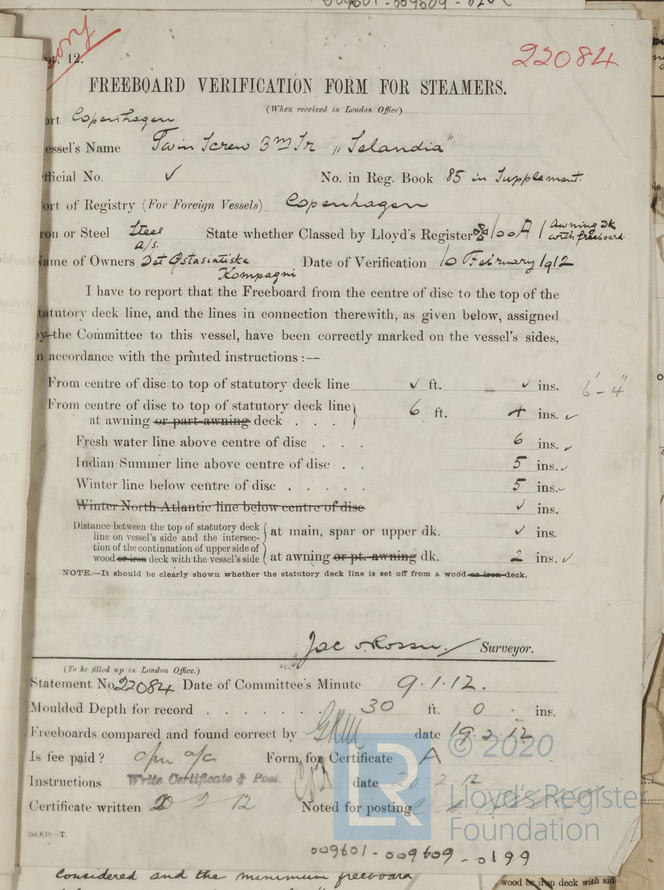 pt. 12.
22084
FREEBOARD VERIFICATION FORM FOR STEAMERS.
(When received in London Office)
ort Copenhagen
essel's Name Twin Screw 3 Mr „Selandia"
fficial No. ✓ No. in Reg. Book 85 in Supplement.
ort of Registry (For Foreign Vessels) Copenhagen
ron or Steel Steel State whether Classed by Lloyd's Register ✠100A1 Awning Dk with freeboard
a/s.
ame of Owners Det Østasiatiske Date of Verification 10 February 1912
Kompagni
I have to report that the Freeboard from the centre of disc to the top of the
tatutory deck line, and the lines in connection therewith, as given below, assigned
by the Committee to this vessel, have been correctly marked on the vessel's sides,
n accordance with the printed instructions :—
From centre of disc to top of statutory deck line ✓ ft. — ✓ ins. 6'-4"
From centre of disc to top of statutory deck line
at awning or part-awning deck . . . 6 ft. 4 ins. ✓
Fresh water line above centre of disc . . . 6 ins. ✓
Indian Summer line above centre of disc . . 5 ins. ✓
Winter line below centre of disc . . . . . 5 ins. ✓
Winter North Atlantic line below centre of disc ✓ ins.
Distance between the top of statutory deck
line on vessel's side and the intersec- at main, spar or upper dk. ✓ ins.
tion of the continuation of upper side of
wood or iron deck with the vessel's side at awning or pt. awning dk. 2 ins. ✓
NOTE.—It should be clearly shown whether the statutory deck line is set off from a wood or iron deck.
Surveyor.
(To be filled up in London Office.)
Statement No. 22084 Date of Committee's Minute 9.1.12.
Moulded Depth for record . . . . . . . 30 ft. 0 ins.
Freeboards compared and found correct by GRM date 19.2.12
Is fee paid? a/c Form for Certificate A
Instructions Write Certificate & Post. date 20 2 12
Certificate written 20 2 12 Noted for posting
© 2020
LR
Lloyd's Register
Foundation
009601-009609-0199
considered and the minimum freeboard
wood or iron deck with sid